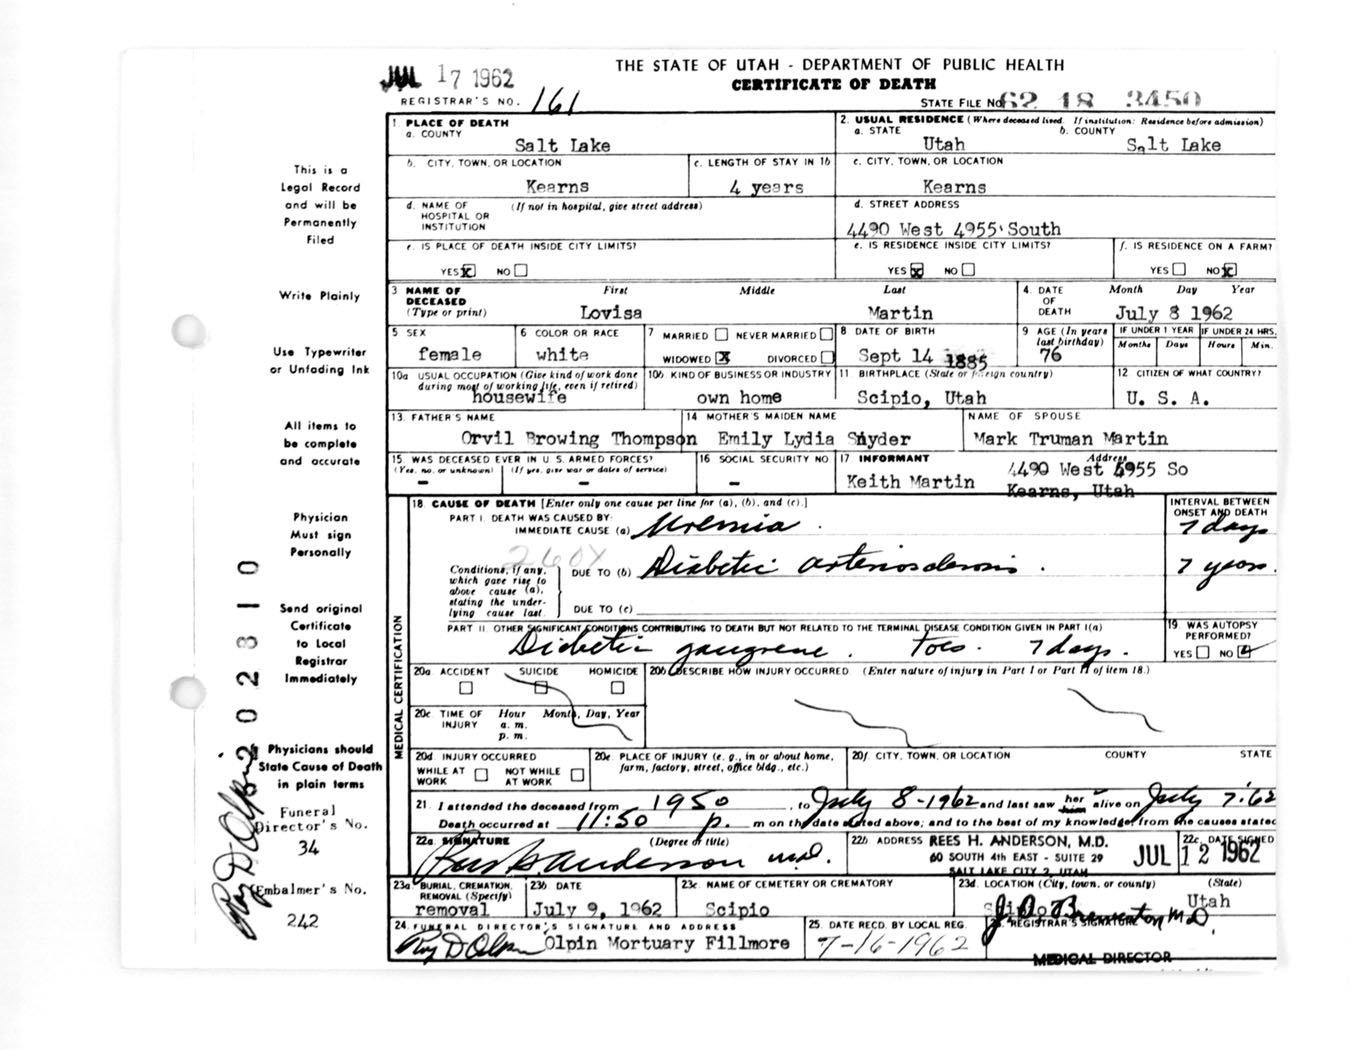 JUL 17 1962
THE STATE OF UTAH - DEPARTMENT OF PUBLIC HEALTH
CERTIFICATE OF DEATH
REGISTRAR'S NO. 161
STATE FILE No. 62 18 3450
This is a
Legal Record
and will be
Permanently
Filed
Write Plainly
Use Typewriter
or Unfading Ink
All items to
be complete
and accurate
Physician
Must sign
Personally
Send original
Certificate
to Local
Registrar
Immediately
Physicians should
State Cause of Death
in plain terms
Funeral
Director's No.
34
Embalmer's No.
242
Roy D Olpin
202810
1 PLACE OF DEATH
a. COUNTY
Salt Lake
2. USUAL RESIDENCE (Where deceased lived. If institution: Residence before admission)
a. STATE
Utah
b. COUNTY
Salt Lake
b. CITY, TOWN, OR LOCATION
Kearns
c. LENGTH OF STAY IN 1b
4 years
c. CITY, TOWN, OR LOCATION
Kearns
d. NAME OF HOSPITAL OR INSTITUTION
(If not in hospital, give street address)
d. STREET ADDRESS
4490 West 4955 South
e. IS PLACE OF DEATH INSIDE CITY LIMITS?
YES x NO
e. IS RESIDENCE INSIDE CITY LIMITS?
YES x NO
f. IS RESIDENCE ON A FARM?
YES NO x
3 NAME OF DECEASED (Type or print)
First Middle Last
Lovisa Martin
4. DATE OF DEATH
Month Day Year
July 8 1962
5 SEX
female
6 COLOR OR RACE
white
7 MARRIED NEVER MARRIED
WIDOWED X DIVORCED
8 DATE OF BIRTH
Sept 14 1885
9 AGE (In years last birthday)
76
IF UNDER 1 YEAR
Months Days
IF UNDER 24 HRS.
Hours Min.
10a USUAL OCCUPATION (Give kind of work done during most of working life, even if retired)
housewife
10b KIND OF BUSINESS OR INDUSTRY
own home
11 BIRTHPLACE (State or foreign country)
Scipio, Utah
12 CITIZEN OF WHAT COUNTRY?
U. S. A.
13. FATHER'S NAME
Orvil Browing Thompson
14 MOTHER'S MAIDEN NAME
Emily Lydia Snyder
NAME OF SPOUSE
Mark Truman Martin
15 WAS DECEASED EVER IN U. S. ARMED FORCES?
(Yes, no, or unknown) (If yes, give war or dates of service)
- -
16 SOCIAL SECURITY NO
-
17 INFORMANT
Keith Martin
Address
4490 West 4955 So
Kearns, Utah
MEDICAL CERTIFICATION
18 CAUSE OF DEATH [Enter only one cause per line for (a), (b), and (c).]
INTERVAL BETWEEN ONSET AND DEATH
PART I. DEATH WAS CAUSED BY:
IMMEDIATE CAUSE (a) Uremia.
7 days
260X
Conditions, if any, which gave rise to above cause (a), stating the underlying cause last.
DUE TO (b) Diabetic arteriosclerosis.
7 years.
DUE TO (c)
PART II. OTHER SIGNIFICANT CONDITIONS CONTRIBUTING TO DEATH BUT NOT RELATED TO THE TERMINAL DISEASE CONDITION GIVEN IN PART I(a)
Diabetic gangrene. toes. 7 days.
19. WAS AUTOPSY PERFORMED?
YES NO
20a ACCIDENT SUICIDE HOMICIDE
20b DESCRIBE HOW INJURY OCCURRED (Enter nature of injury in Part I or Part II of item 18.)
20c TIME OF INJURY
Hour Month, Day, Year
a. m.
p. m.
20d. INJURY OCCURRED
WHILE AT WORK NOT WHILE AT WORK
20e. PLACE OF INJURY (e. g., in or about home, farm, factory, street, office bldg., etc.)
20f. CITY, TOWN, OR LOCATION COUNTY STATE
21. I attended the deceased from 1950, to July 8-1962 and last saw her him alive on July 7-62
Death occurred at 11:50 p. m on the date stated above; and to the best of my knowledge, from the causes stated
22a. SIGNATURE (Degree or title)
Rees H. Anderson M.D.
22b ADDRESS REES H. ANDERSON, M.D.
60 SOUTH 4th EAST - SUITE 29
SALT LAKE CITY 2, UTAH
22c. DATE SIGNED
JUL 12 1962
23a BURIAL, CREMATION, REMOVAL (Specify)
removal
23b DATE
July 9, 1962
23c NAME OF CEMETERY OR CREMATORY
Scipio
23d. LOCATION (City, town, or county) (State)
Scipio Utah
24. FUNERAL DIRECTOR'S SIGNATURE AND ADDRESS
Roy D Olpin Olpin Mortuary Fillmore
25. DATE RECD. BY LOCAL REG.
7-16-1962
REGISTRAR'S SIGNATURE
M.D.
MEDICAL DIRECTOR